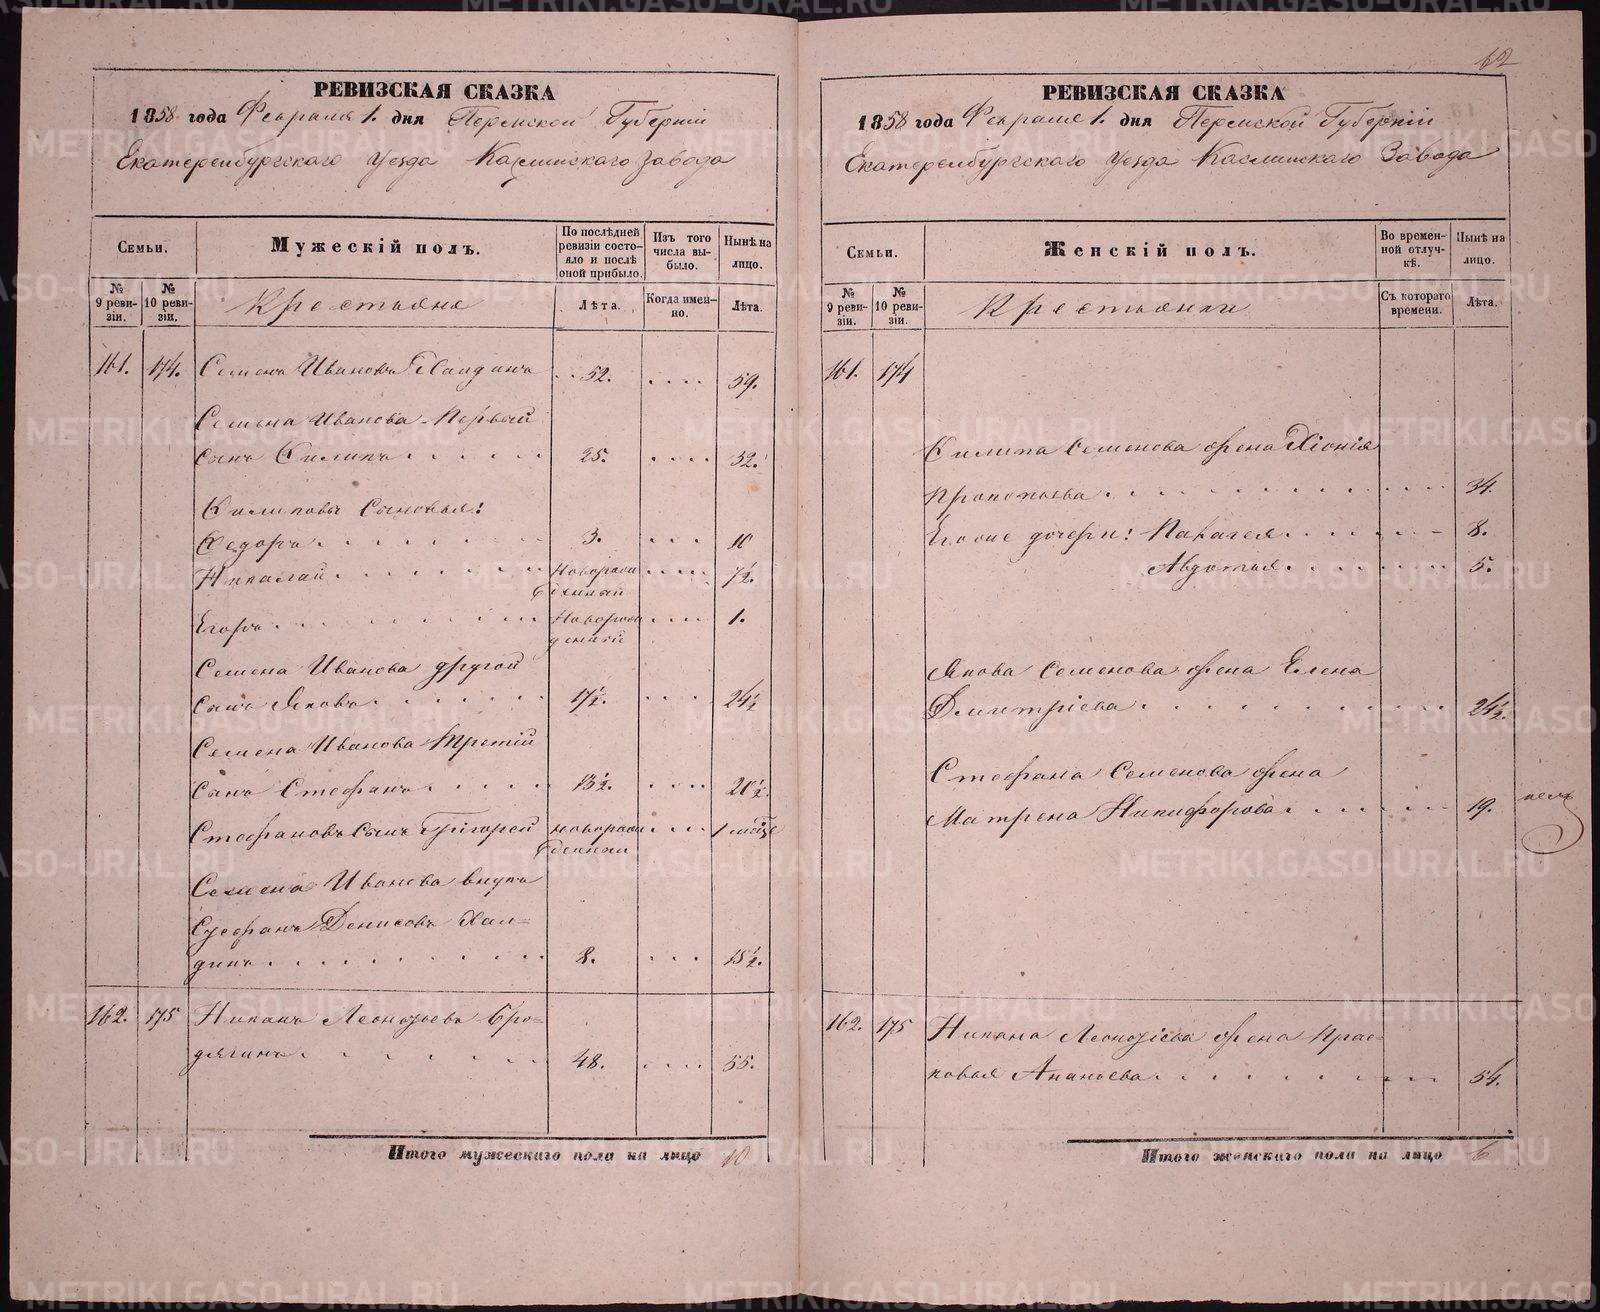 62
РЕВИЗСКАЯ СКАЗКА
1858 года Февраля 1. дня Пермской Губерніи
Екатеринбургскаго Уезда Каслинскаго Завода
Семьи.
Мужескій полъ.
По послѣдней ревизіи состояло и послѣ оной прибыло.
Изъ того числа выбыло.
Нынѣ на лицо.
№ 9 ревизіи.
№ 10 ревизіи.
Крестьяне
Лѣта.
Когда именно.
Лѣта.
161. 174. Семенъ Ивановъ Халдинъ . . 52. . . . . 59.
Семена Иванова Первый
сынъ Филипъ . . . . . . 25. . . . . 32.
Филиповы Сыновья:
Федоръ . . . . . . . 3. . . . 10
Николай . . . . . . . Новорож . . . . 7½.
денный
Егоръ . . . . . . . Новорож . . . . 1.
денный
Семена Иванова другой
сынъ Яковъ . . . . . . . 17½. . . . 24½
Семена Иванова Третій
Сынъ Стефанъ . . . . . . 13½. . . . . 20½.
Стефановъ Сынъ Григорей новорож . . . . 1 мѣсяце
денный
Семена Иванова внукъ
Стефанъ Денисовъ Хал=
динъ . . . . . . . . . 8. . . . 15½.
162. 175 Никонъ Леонтьевъ Бро=
дягинъ . . . . . . . 48. . . . . 55.
Итого мужескаго пола на лицо 10
РЕВИЗСКАЯ СКАЗКА
1858 года Февраля 1. дня Пермской Губерніи
Екатеринбургскаго Уезда Каслинскаго Завода
Семьи.
Женскій полъ.
Во временной отлучкѣ.
Нынѣ на лицо.
№ 9 ревизіи.
№ 10 ревизіи.
Крестьянки
Съ котораго времени.
Лѣта.
161. 174
Филипа Семенова жена Хіонія
Прокопьева . . . . . . . . . . . . 34.
Егоже дочери: Парасея . . . . . . . 8.
Авдотья . . . . . . . 5.
Якова Семенова жена Елена
Дмитріева . . . . . . . . . . 24½.
Стефана Семенова жена
Матрена Никифорова . . . . . . . 19.
162. 175 Никона Леонтіева жена Прас=
ковья Ананьева . . . . . . . . . . 54.
Итого женскаго пола на лицо 6
METRIKI.GASO-URAL.RU